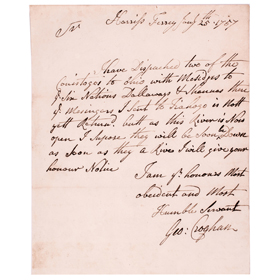 Harriss Ferry Jany 25th 1757
Sr.
I have Dispatched two of the
Conistogos to Ohio with Mesidges to
ye Six Nations Dallaways & Shanas there
ye Mesingers I Sent to Tiaogo is Nott
yett Returnd. butt as this River is Now
open I Supose they will be Soon Down
as Soon as they a Rive I will give your
honour Notice
I am yr. honours Most
obedient and Most
Humble Servant
Geo: Croghan